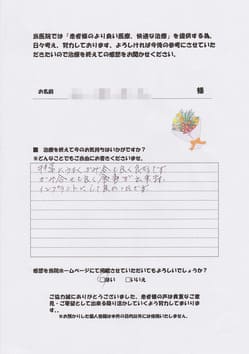 当医院では「患者様のより良い医療、快適な治療」を提供する為、
日々考え、努力しております。よろしければ今後の参考にさせていた
だきたいので治療を終えての感想をお聞かせください。
お名前 様
■ 治療を終えて今のお気持ちはいかがですか？
※どんなことでもご自由にお書きください。
かみ合せも良く食事が出来ます
インプラントにして良かったです
感想を当院ホームページにて掲載させていただいてもよろしいでしょうか？
□はい □いいえ
ご協力誠にありがとうございました。患者様の声は貴重なご意
見・ご要望として出来る限り活かしていくよう努力してまいりま
す。
※お預かりした個人情報は本件の目的以外には使用いたしません。